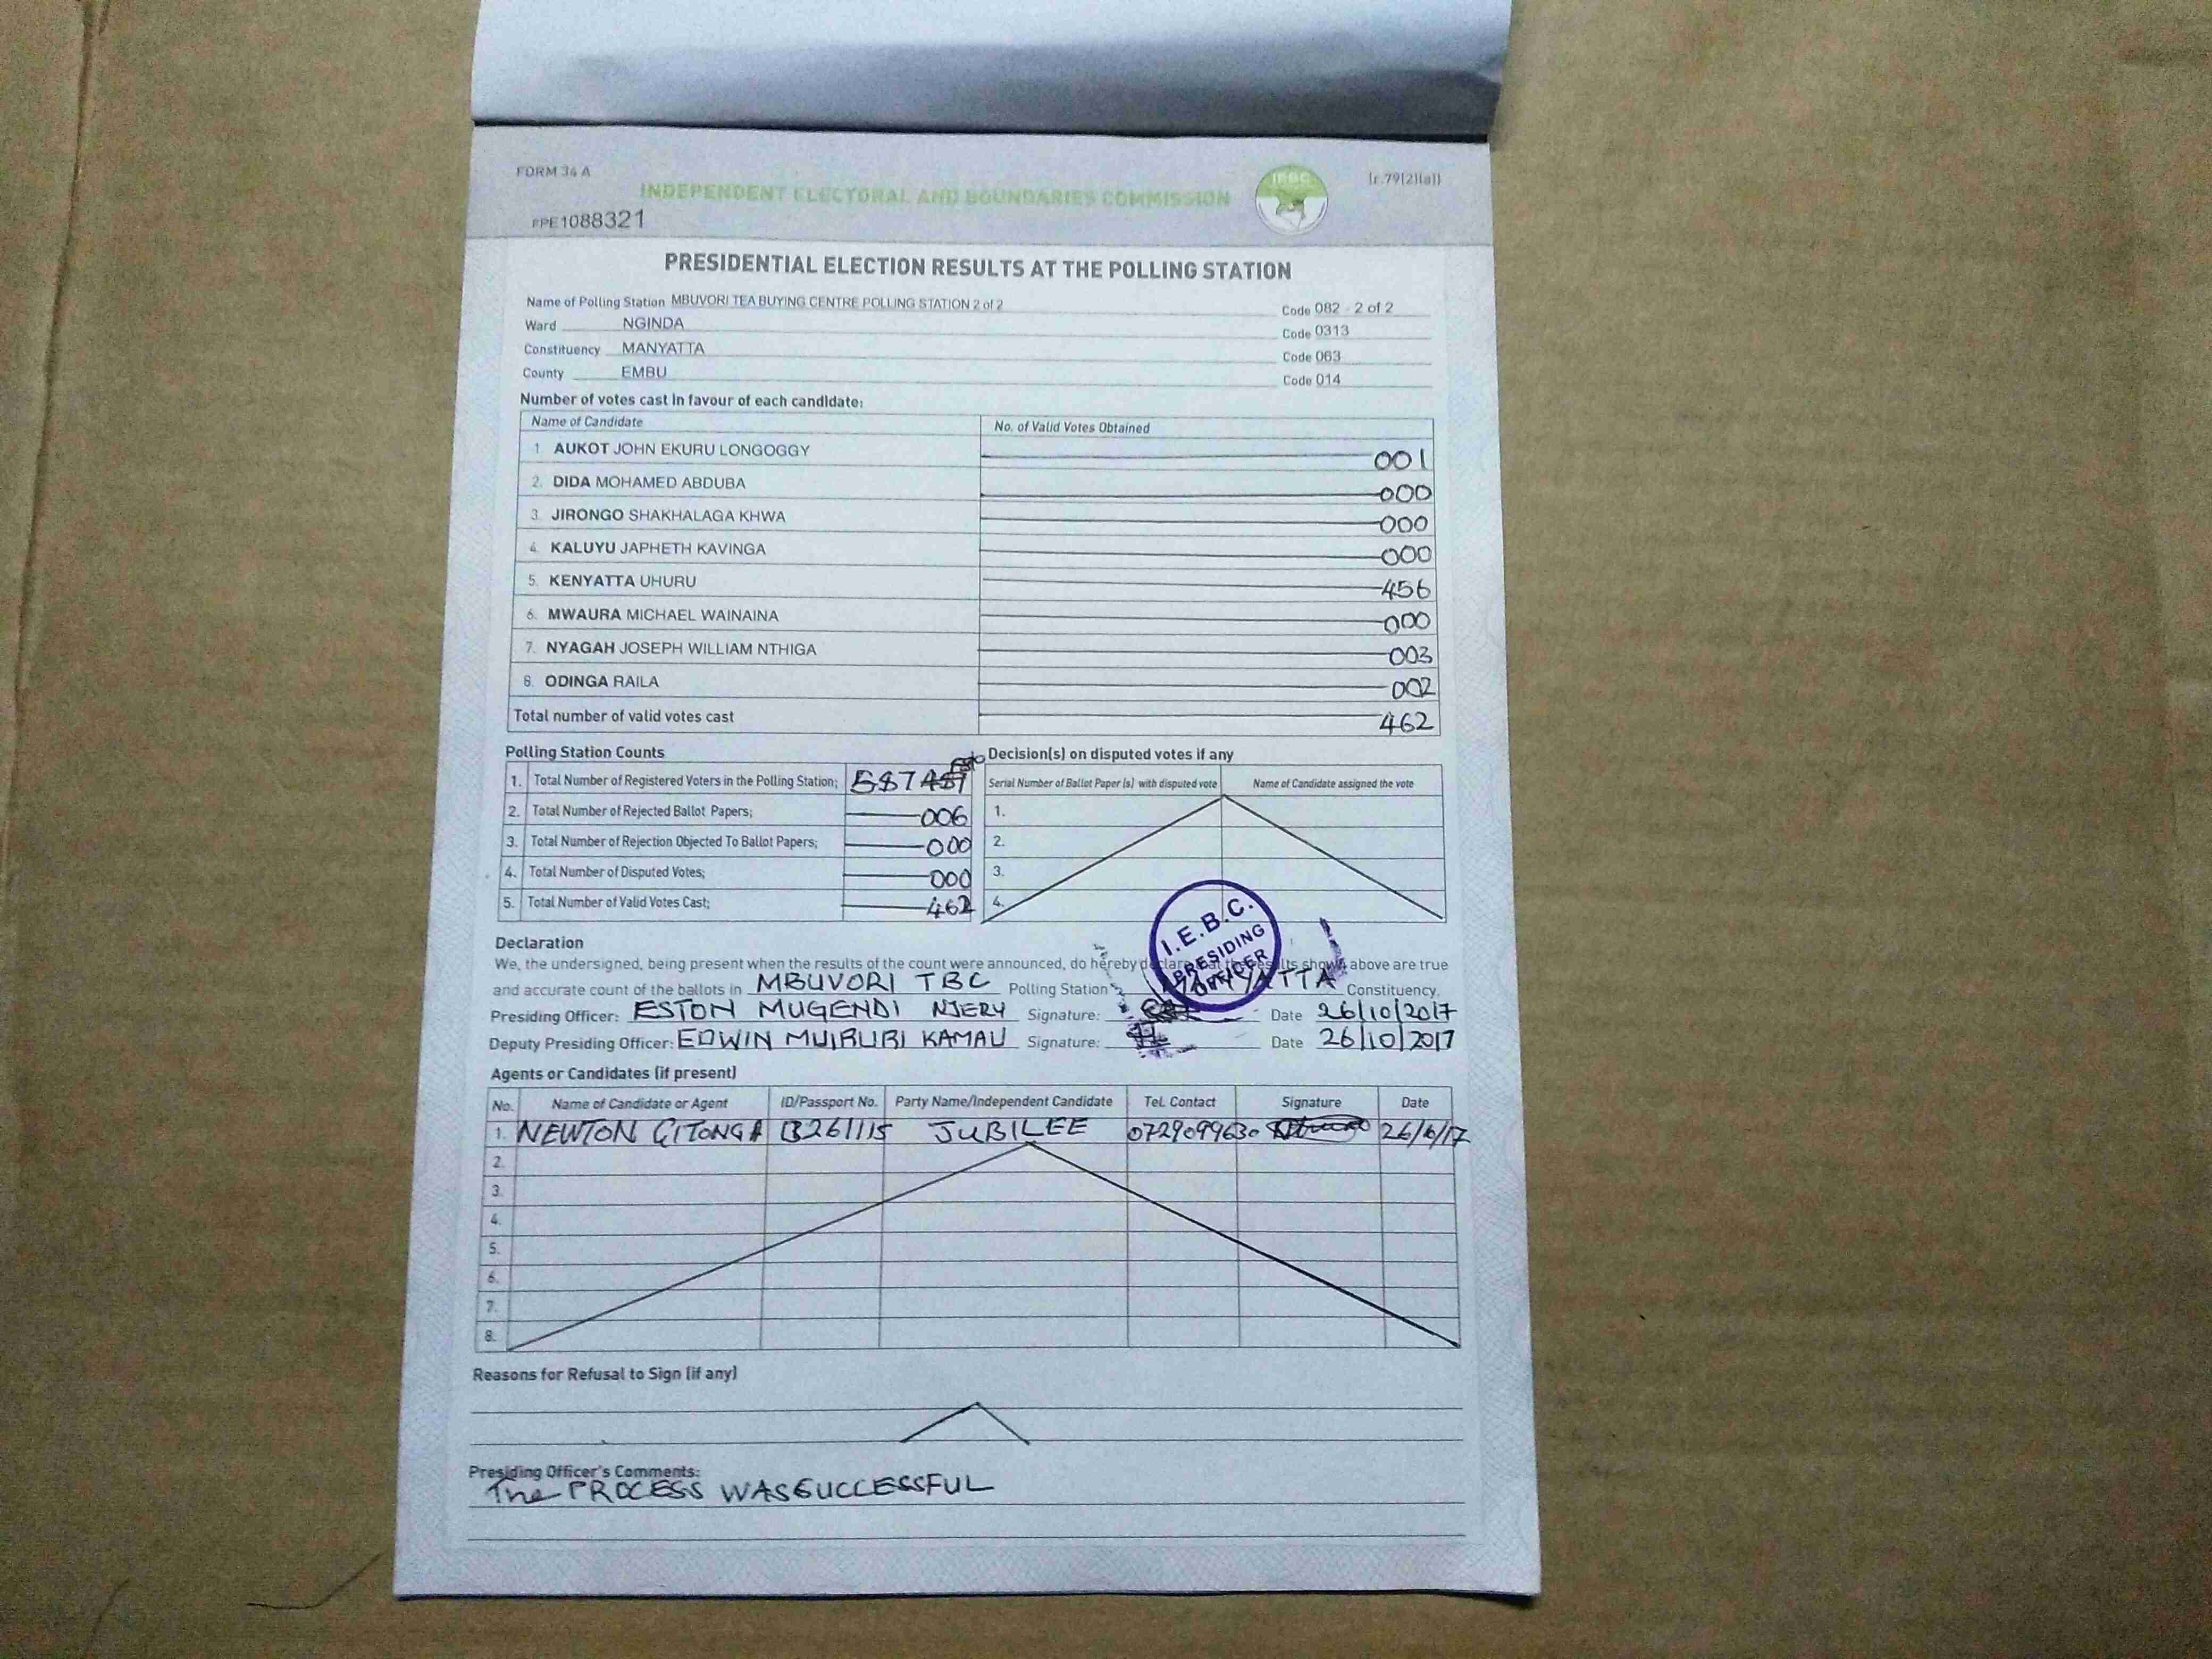 FORM 34 A
INDEPENDENT ELECTORAL AND BOUNDARIES COMMISSION
IEBC
(r.79(2)(a))
PPE1088321
PRESIDENTIAL ELECTION RESULTS AT THE POLLING STATION
Name of Polling Station MBUVORI TEA BUYING CENTRE POLLING STATION 2 of 2 Code 082 - 2 of 2
Ward NGINDA Code 0313
Constituency MANYATTA Code 063
County EMBU Code 014
Number of votes cast in favour of each candidate:
Name of Candidate No. of Valid Votes Obtained
1 AUKOT JOHN EKURU LONGOGGY 001
2. DIDA MOHAMED ABDUBA 000
3. JIRONGO SHAKHALAGA KHWA 000
4. KALUYU JAPHETH KAVINGA 000
5. KENYATTA UHURU 456
6. MWAURA MICHAEL WAINAINA 000
7. NYAGAH JOSEPH WILLIAM NTHIGA 003
8. ODINGA RAILA 002
Total number of valid votes cast 462
Polling Station Counts
1. Total Number of Registered Voters in the Polling Station; 587
2. Total Number of Rejected Ballot Papers; 006
3. Total Number of Rejection Objected To Ballot Papers; 000
4. Total Number of Disputed Votes; 000
5. Total Number of Valid Votes Cast; 462
Decision(s) on disputed votes if any
Serial Number of Ballot Paper (s) with disputed vote Name of Candidate assigned the vote
1.
2.
3.
4.
I.E.B.C. PRESIDING OFFICER
Declaration
We, the undersigned, being present when the results of the count were announced, do hereby declare that the results shown above are true
and accurate count of the ballots in MBUVORI TBC Polling Station MANYATTA Constituency.
Presiding Officer: ESTON MUGENDI NJERU Signature: Date 26/10/2017
Deputy Presiding Officer: EDWIN MUIRURI KAMAU Signature: Date 26/10/2017
Agents or Candidates (if present)
No. Name of Candidate or Agent ID/Passport No. Party Name/Independent Candidate Tel. Contact Signature Date
1. NEWTON GITONGA 13261115 JUBILEE 0729099630
2.
3.
4.
5.
6.
7.
8.
Reasons for Refusal to Sign (if any)
Presiding Officer's Comments:
The PROCESS WAS SUCCESSFUL